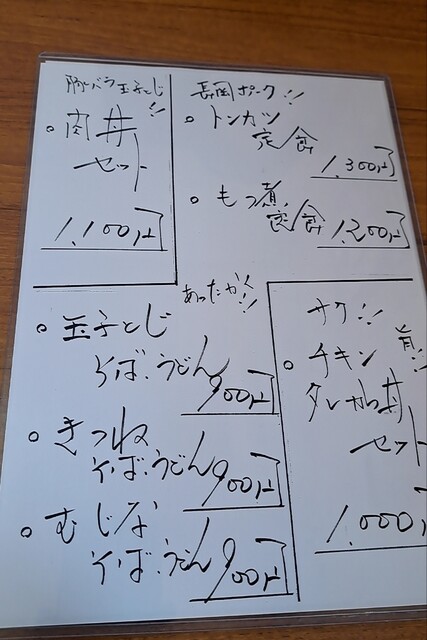 豚バラ玉子とじ
。肉丼!!
セット
1,100円
長岡ポーク!!
。トンカツ
定食
1,300円
。もつ煮
定食
1,200円
あったかく!!
。玉子とじ
そば.うどん
900円
。きつね
そば.うどん
900円
。むじな
そば.うどん
900円
サク!!
。チキン
タレかつ丼
セット
1,000円